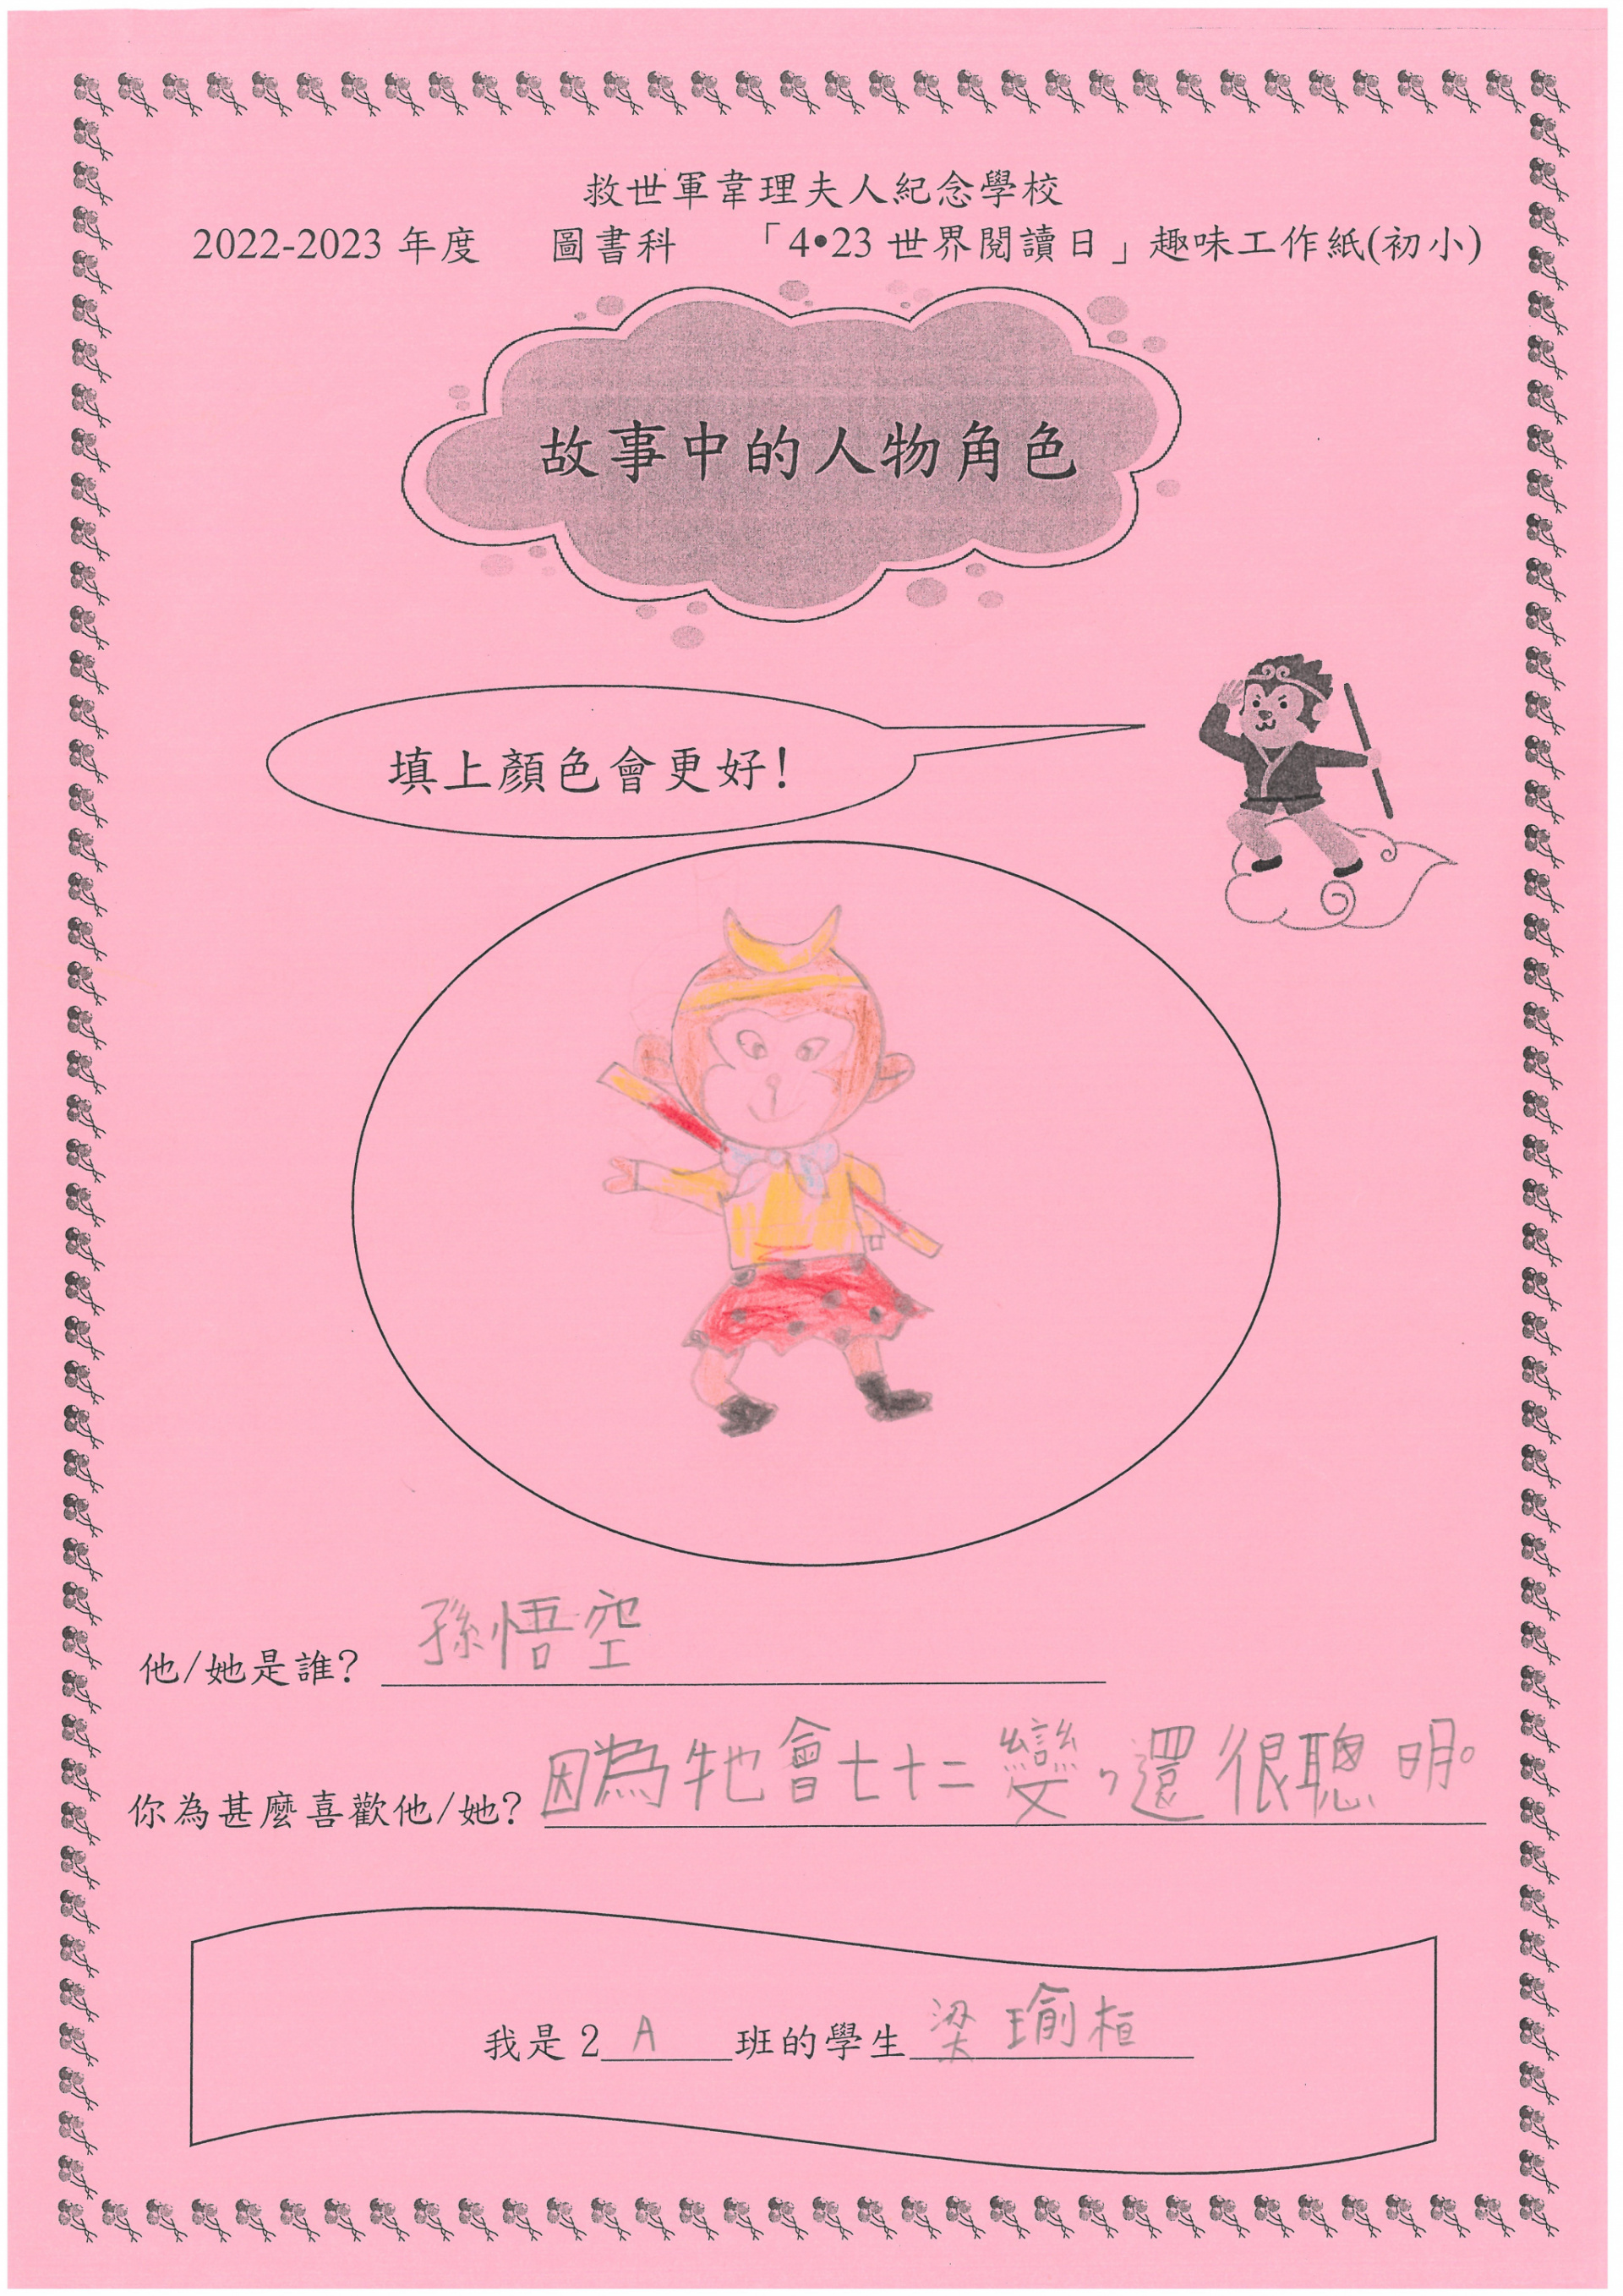 救世軍韋理夫人紀念學校
2022-2023 年度 圖書科 「4•23 世界閱讀日」趣味工作紙(初小)
故事中的人物角色
填上顏色會更好!
他/她是誰? 孫悟空
你為甚麼喜歡他/她? 因為牠會七十二變,還很聰明。
我是 2 A 班的學生 梁瑜桓